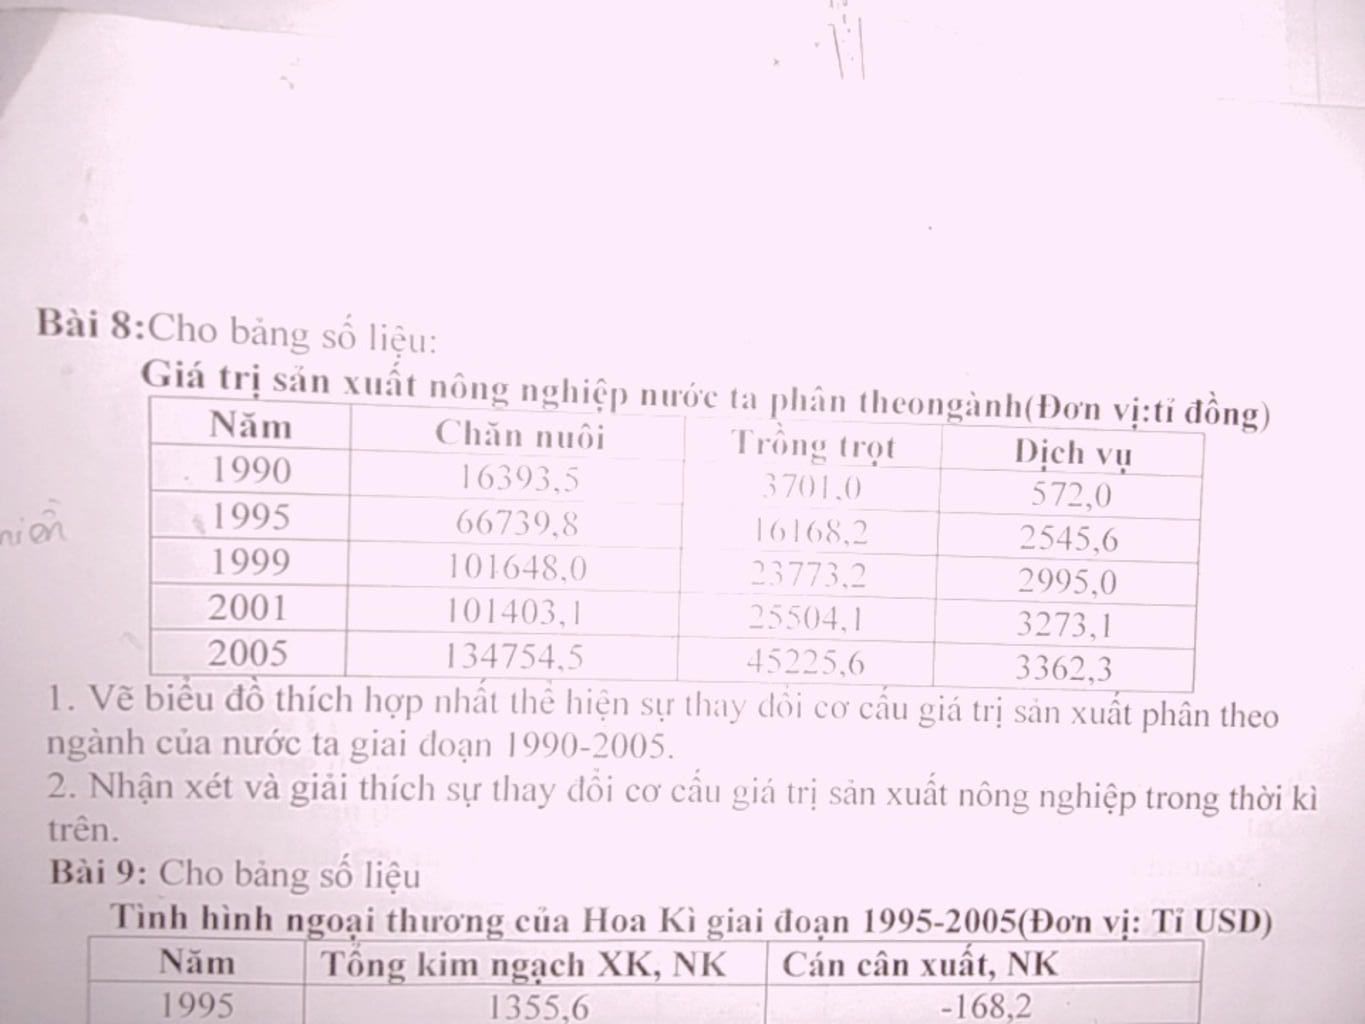 Bài 8:Cho bảng số liệu:
Giá trị sản xuất nông nghiệp nước ta phân theongành(Đơn vị:tỉ đồng)
Năm Chăn nuôi Trồng trọt Dịch vụ
1990 16393,5 3701,0 572,0
1995 66739,8 16168,2 2545,6
1999 101648,0 23773,2 2995,0
2001 101403,1 25504,1 3273,1
2005 134754,5 45225,6 3362,3
1. Vẽ biểu đồ thích hợp nhất thể hiện sự thay đổi cơ cấu giá trị sản xuất phân theo
ngành của nước ta giai đoạn 1990-2005.
2. Nhận xét và giải thích sự thay đổi cơ cấu giá trị sản xuất nông nghiệp trong thời kì
trên.
Bài 9: Cho bảng số liệu
Tình hình ngoại thương của Hoa Kì giai đoạn 1995-2005(Đơn vị: Tỉ USD)
Năm Tổng kim ngạch XK, NK Cán cân xuất, NK
1995 1355,6 -168,2